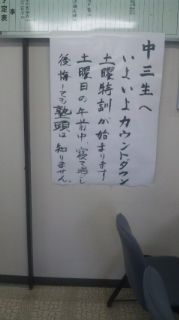 中三生へ
いよいよカウントダウン
土曜特訓が始まります
土曜日の午前中、寝て過し
後悔しても塾頭は知りません。
定表